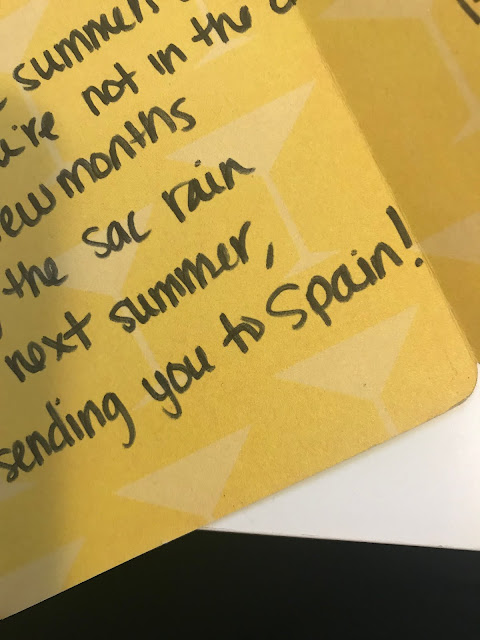 summer
not in the
months
the sac rain
next summer,
sending you to Spain!